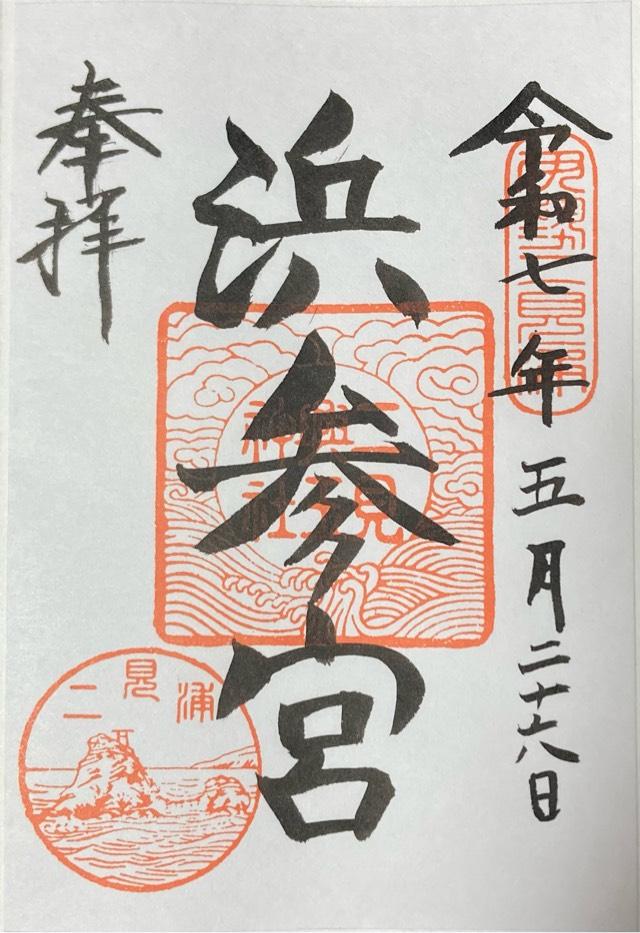 令和七年五月二十六日
伊勢二見浦
浜参宮
二見興玉神社
奉拝
二見浦